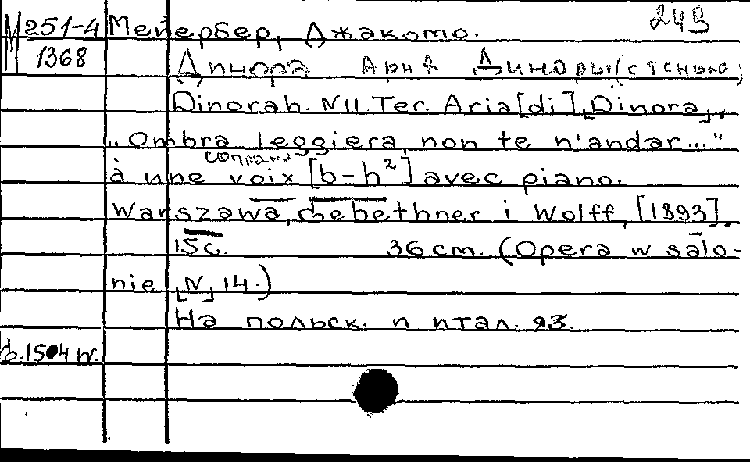 М 251-4 Мейербер, Джакомо. 249
1368
Динора Ария Диноры (с тенью)
Dinorah. N 11. Ter. Aria [di] Dinora,
"Ombra leggiera, non te n'andar..."
сопрано
à une voix [b-h²] avec piano.
Warszawa, Gebethner i Wolff, [1893].
15 c. 36 cm. (Opera w salo-
nie, N 14.)
На польск. и итал. яз.